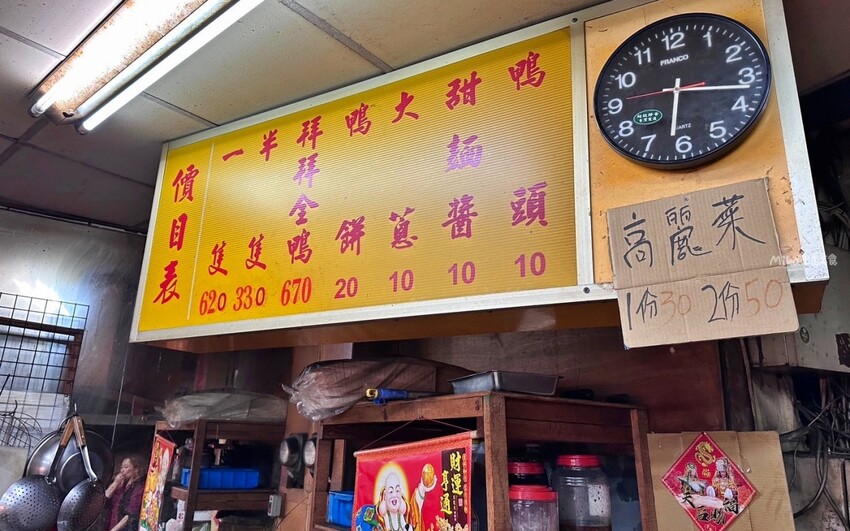 價目表
一隻 620
半隻 330
拜拜全鴨 670
鴨餅 20
大蔥 10
甜麵醬 10
鴨頭 10
12
1
2
3
4
5
6
7
8
9
10
11
FRANCO
QUARTZ
高麗菜
1份30 2份50
財運亨通